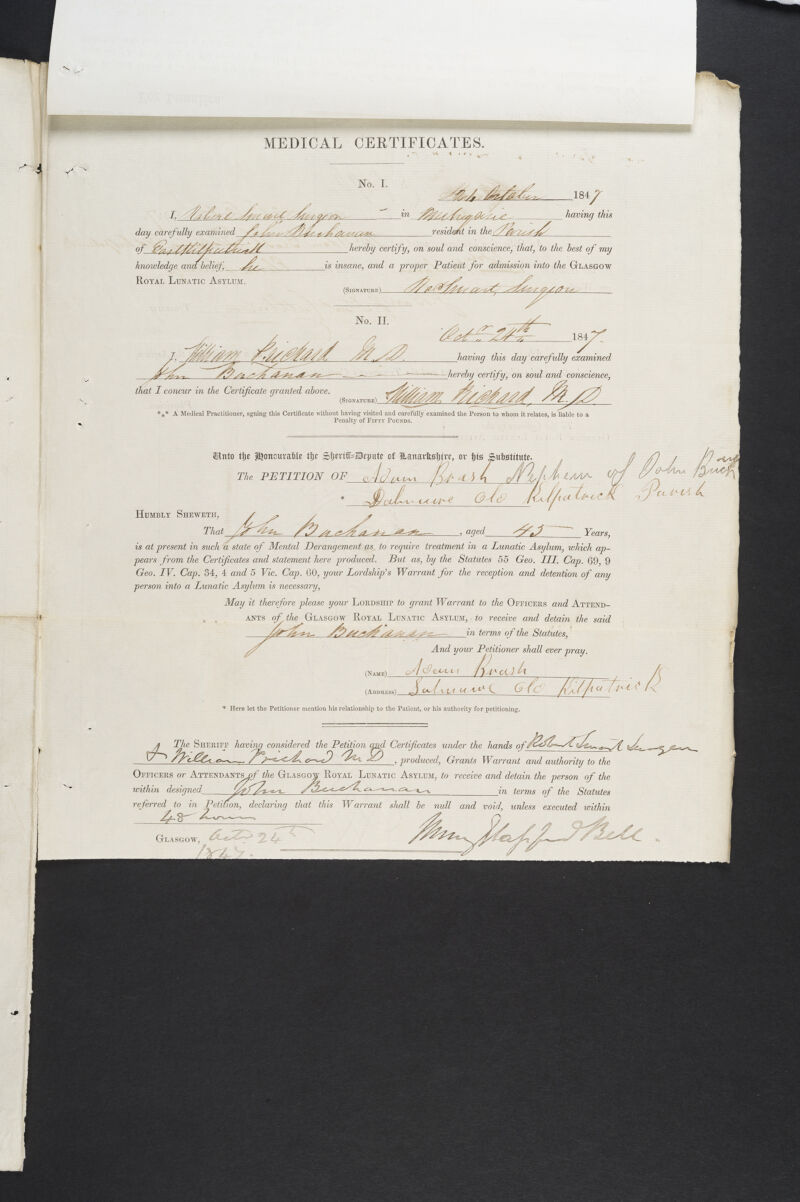 MEDICAL CERTIFICATES.
No. I.
October 1847
I, Robert Smart Surgeon in Milngavie having this
day carefully examined John Buchanan resident in the Parish
of East Kilpatrick hereby certify, on soul and conscience, that, to the best of my
knowledge and belief, he is insane, and a proper Patient for admission into the GLASGOW
ROYAL LUNATIC ASYLUM.
(SIGNATURE) Ro Smart, Surgeon
No. II.
Octr 24th 1847.
I, William Prichard M.D. having this day carefully examined
John Buchanan hereby certify, on soul and conscience,
that I concur in the Certificate granted above.
(SIGNATURE) William Prichard M.D.
*** A Medical Practitioner, sgning this Certificate without having visited and carefully examined the Person to whom it relates, is liable to a
Penalty of FIFTY POUNDS.
Unto the Honourable the Sheriff-Depute of Lanarkshire, or his Substitute.
The PETITION OF Adam Brash Nephew of John Buchanan
* Dalmure Old Kilpatrick Parish
HUMBLY SHEWETH,
That John Buchanan, aged 45 Years,
is at present in such a state of Mental Derangement as to require treatment in a Lunatic Asylum, which ap-
pears from the Certificates and statement here produced. But as, by the Statutes 55 Geo. III. Cap. 69, 9
Geo. IV. Cap. 34, 4 and 5 Vic. Cap. 60, your Lordship's Warrant for the reception and detention of any
person into a Lunatic Asylum is necessary,
May it therefore please your LORDSHIP to grant Warrant to the OFFICERS and ATTEND-
ANTS of the GLASGOW ROYAL LUNATIC ASYLUM, to receive and detain the said
John Buchanan in terms of the Statutes,
And your Petitioner shall ever pray.
(NAME) Adam Brash
(ADDRESS) Dalmure Old Kilpatrick
* Here let the Petitioner mention his relationship to the Patient, or his authority for petitioning.
The SHERIFF having considered the Petition and Certificates under the hands of Robert Smart Surgeon
& William Prichard M.D., produced, Grants Warrant and authority to the
OFFICERS or ATTENDANTS of the GLASGOW ROYAL LUNATIC ASYLUM, to receive and detain the person of the
within designed John Buchanan in terms of the Statutes
referred to in Petition, declaring that this Warrant shall be null and void, unless executed within
48 hours
GLASGOW, Octr 24th
1847.
Bell